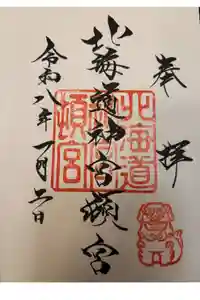 奉拝
北海道神宮頓宮
北海道
神宮
頓宮
令和八年一月二日